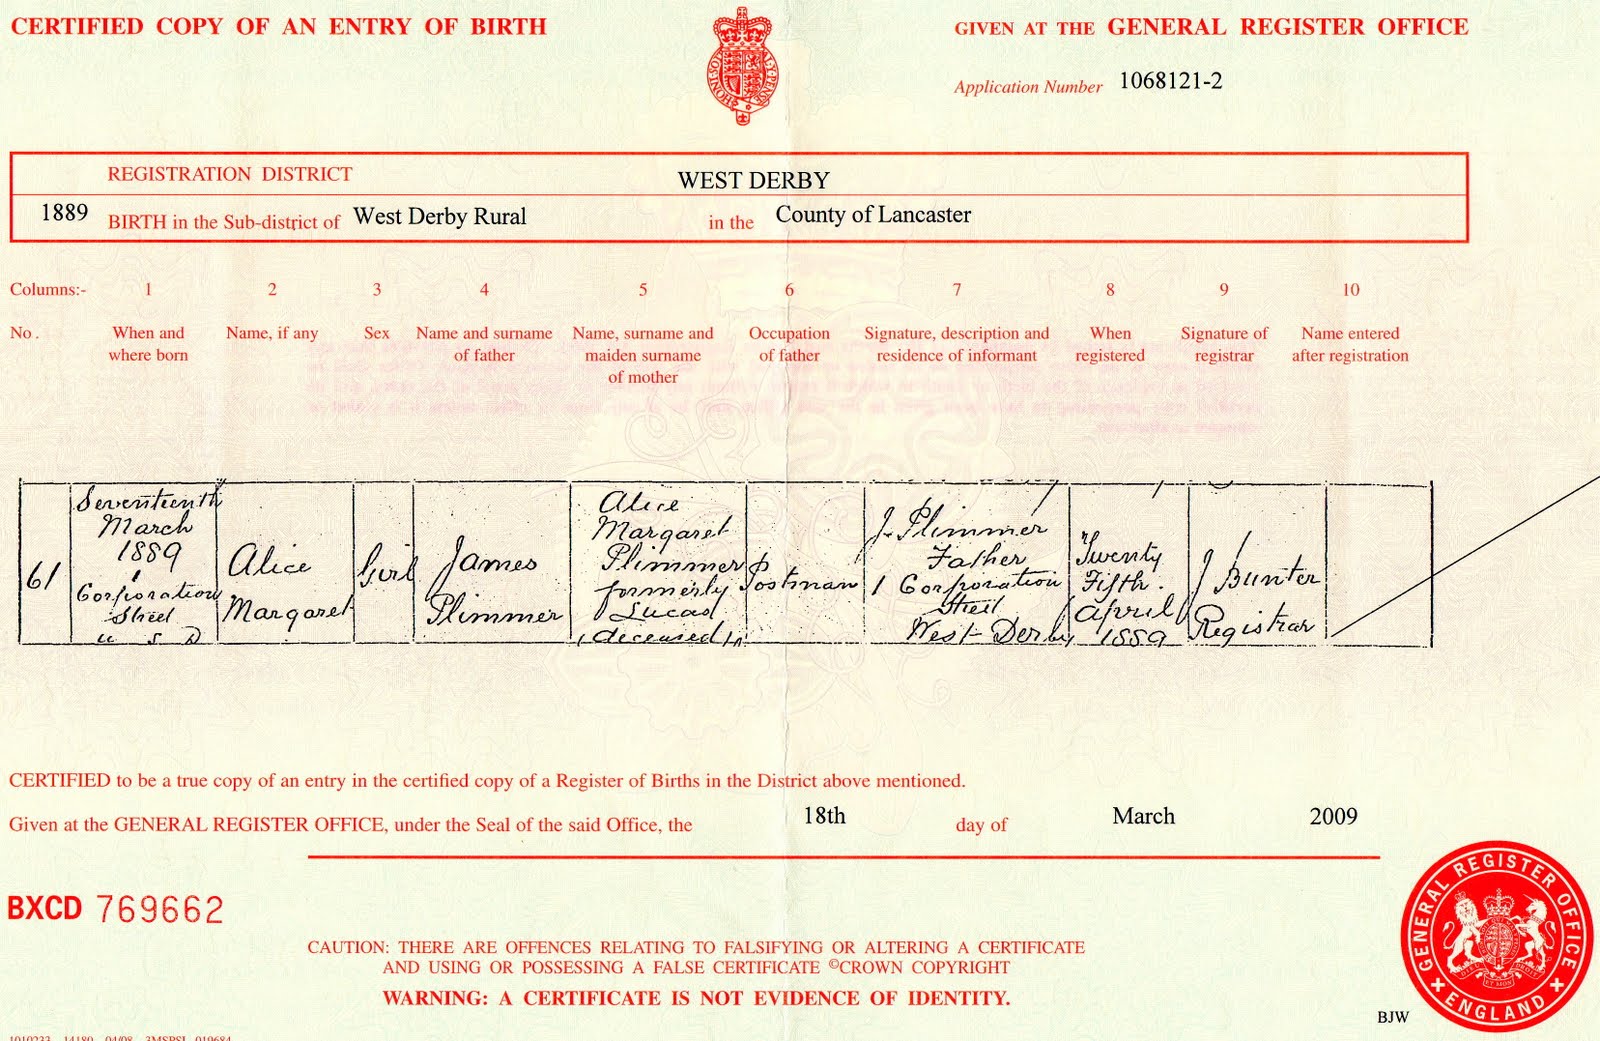 CERTIFIED COPY OF AN ENTRY OF BIRTH
GIVEN AT THE GENERAL REGISTER OFFICE
HONI SOIT QUI MAL Y PENSE
Application Number 1068121-2
REGISTRATION DISTRICT WEST DERBY
1889 BIRTH in the Sub-district of West Derby Rural in the County of Lancaster
Columns:- 1 2 3 4 5 6 7 8 9 10
No. When and where born
Name, if any
Sex
Name and surname of father
Name, surname and maiden surname of mother
Occupation of father
Signature, description and residence of informant
When registered
Signature of registrar
Name entered after registration
61
Seventeenth
March
1889
1
Corporation
Street
u S D
Alice
Margaret
Girl
James
Plimmer
Alice
Margaret
Plimmer
formerly
Lucas
(deceased)
Postman
J. Plimmer
Father
1 Corporation
Street
West Derby
Twenty
Fifth
April
1889
J Bunter
Registrar
CERTIFIED to be a true copy of an entry in the certified copy of a Register of Births in the District above mentioned.
Given at the GENERAL REGISTER OFFICE, under the Seal of the said Office, the 18th day of March 2009
BXCD 769662
CAUTION: THERE ARE OFFENCES RELATING TO FALSIFYING OR ALTERING A CERTIFICATE
AND USING OR POSSESSING A FALSE CERTIFICATE ©CROWN COPYRIGHT
WARNING: A CERTIFICATE IS NOT EVIDENCE OF IDENTITY.
GENERAL REGISTER OFFICE
ENGLAND
BJW
1010233 14180 04/08 3MSPSL 019684